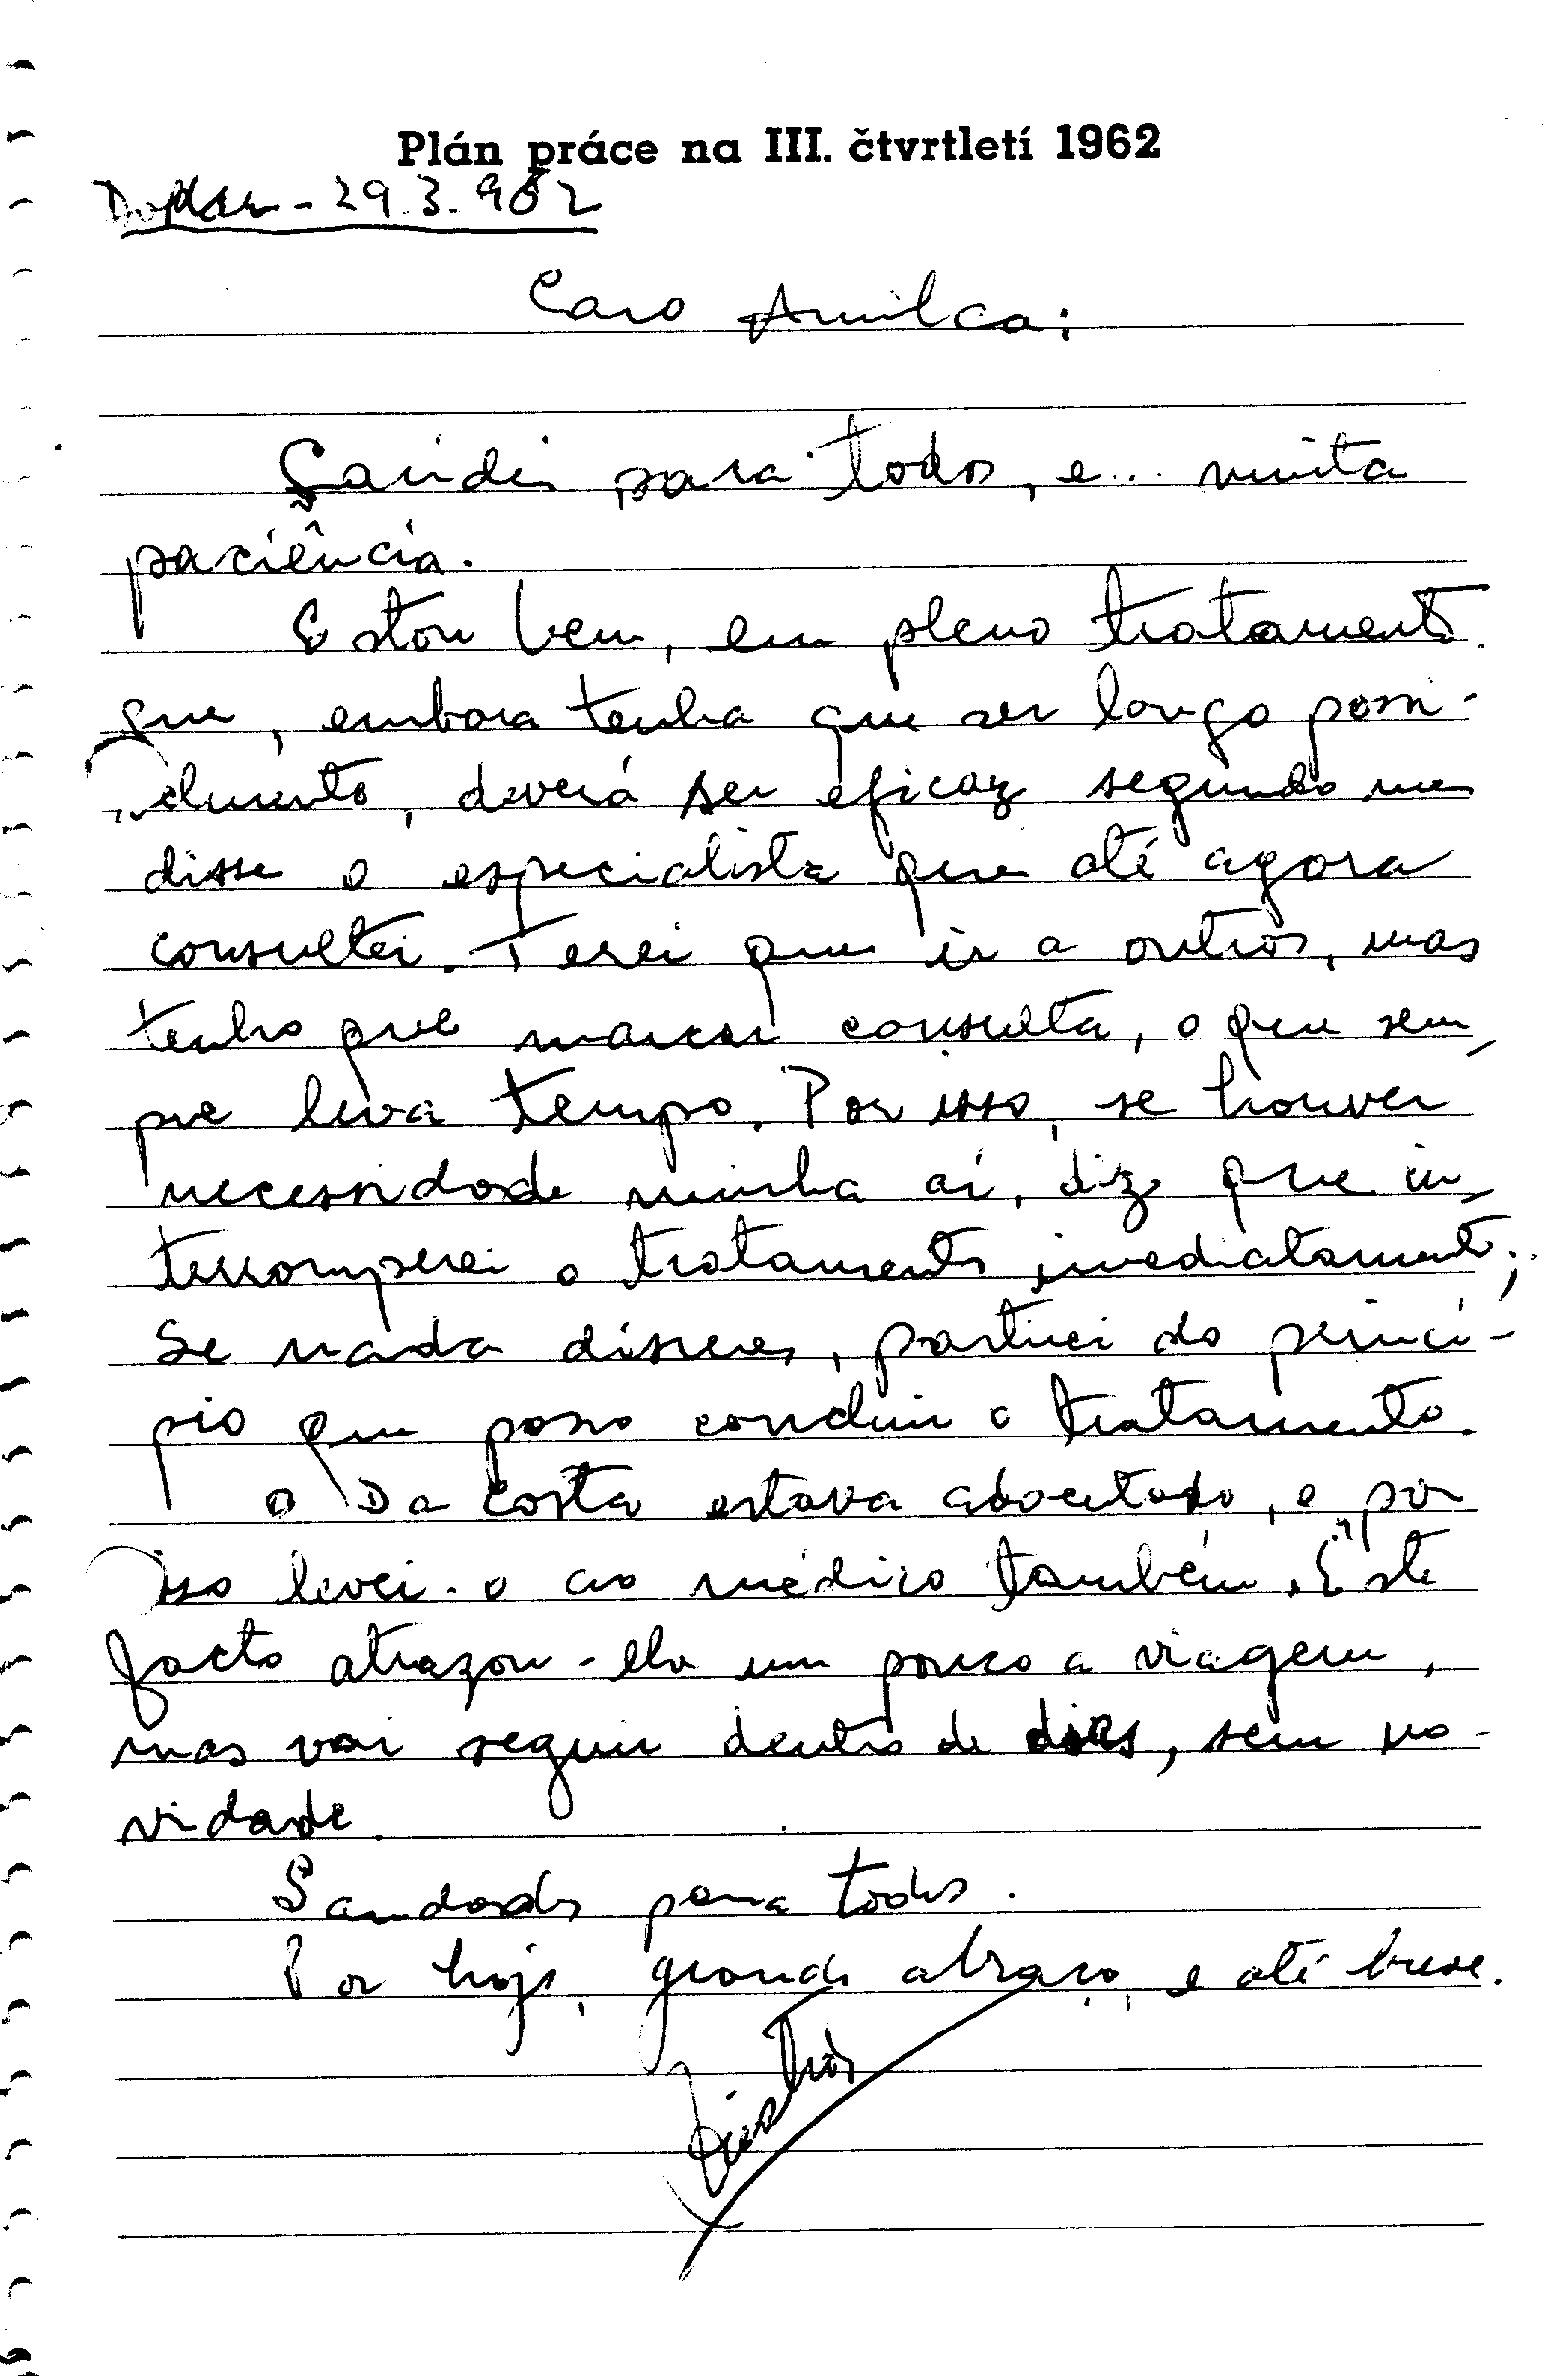 Plán práce na III. čtvrtletí 1962
29.3.962
Caro Amilca:
Saúde para todos, e... muita
paciência.
Estou bem, em pleno tratamento
que, embora tenha que ser longo possi-
velmente, deverá ser eficaz segundo me
disse o especialista que até agora
consultei. Terei que ir a outros, mas
tenho que marcar consulta, o que sem-
pre leva tempo. Por isso, se houver
necessidade minha aí, diz que in-
terromperei o tratamento imediatamente;
Se nada disseres, partirei do princí-
pio que posso concluir o tratamento.
O Da Costa estava adoentado, e por
isso levei-o ao médico também. Este
facto atrazou-lhe um pouco a viagem,
mas vai seguir dentro de dias, sem no-
vidade.
Saudades para todos.
Por hoje, grande abraço, e até breve.